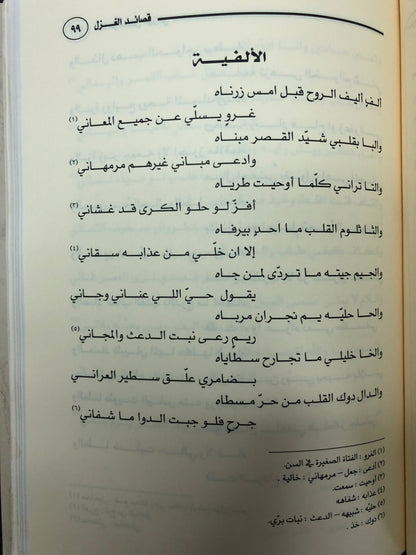 قصائد الغزل ٩٩
الألفية
الف أليف الروح قبل امس زرناه
غروٍ يسلّي عن جميع المعاني (١)
والبا بقلبي شيّد القصر مبناه
وادعى مباني غيرهم مرمهاني (٢)
والتا تراني كلّما أوحيت طرياه
أفزّ لو حلو الكرى قد غشاني (٣)
والثا ثلوم القلب ما احدٍ بيرفاه
إلا ان خلّي من عذابه سقاني (٤)
والجيم جيته ما تردّى لمن جاه
يقول حيّ اللي عناني وجاني
والحا حليّه يم نجران مرباه
ريمٍ رعى نبت الدعث والمجاني (٥)
والخا خليلي ما تجارح سطاياه
بضامري علّق سطير العراني
والدال دوك القلب من حرّ مسطاه
جرحٍ فلو جبت الدوا ما شفاني (٦)
(١) الغرو : الفتاة الصغيرة في السن.
(٢) أدعى : جعل – مرمهاني : خالية .
(٣) أوحيت : سمعت.
(٤) عذابه : شفاهه
(٥) حليّه : شبيهه – الدعث : نبات برّي.
(٦) دوك : خذ .